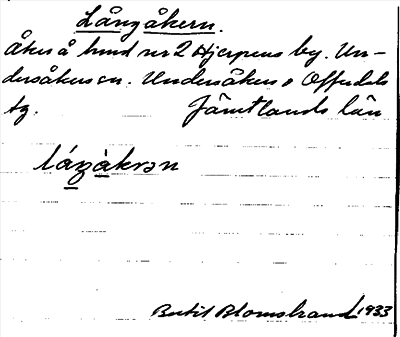 Långåkern.
Åker å hmd nr 2 Hjerpens by. Un-
dersåkers sn. Undersåkers o Offerdals
tg. Jämtlands län
Bertil Blomstrand 1933